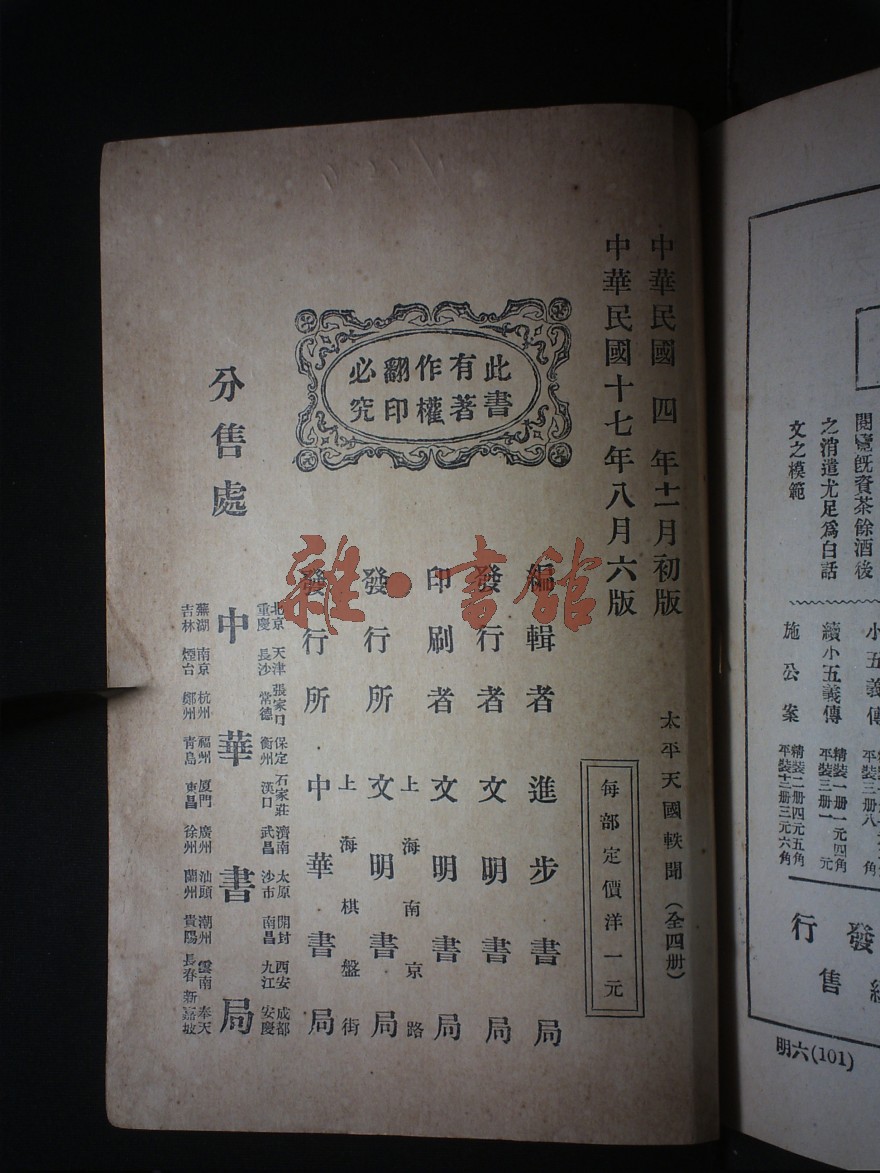 閱覽既資茶餘酒後
之消遣尤足爲白話
文之模範
小五義傳
平裝三册八 角
續小五義傳
精裝一册一元四角
平裝三册一 元
施公案
精裝二册四元五角
平裝十二册三元六角
發
行
售
明六(101)
中華民國 四 年十一月初版
中華民國十七年八月六版
太平天國軼聞(全四册)
每部定價洋一元
此書
有著
作權
翻印
必究
編輯者 進步書局
發行者 文明書局
印刷者 文明書局
上海南京路
發行所 文明書局
上海棋盤街
發行所 中華書局
分售處
北京 天津 張家口 保定 石家莊 濟南 太原 開封 西安 成都
重慶 長沙 常德 衡州 漢口 武昌 沙市 南昌 九江 安慶
中華書局
蕪湖 南京 杭州 福州 厦門 廣州 汕頭 潮州 雲南 奉天
吉林 煙台 鄭州 青島 東昌 徐州 蘭州 貴陽 長春 新嘉坡
雜·書館